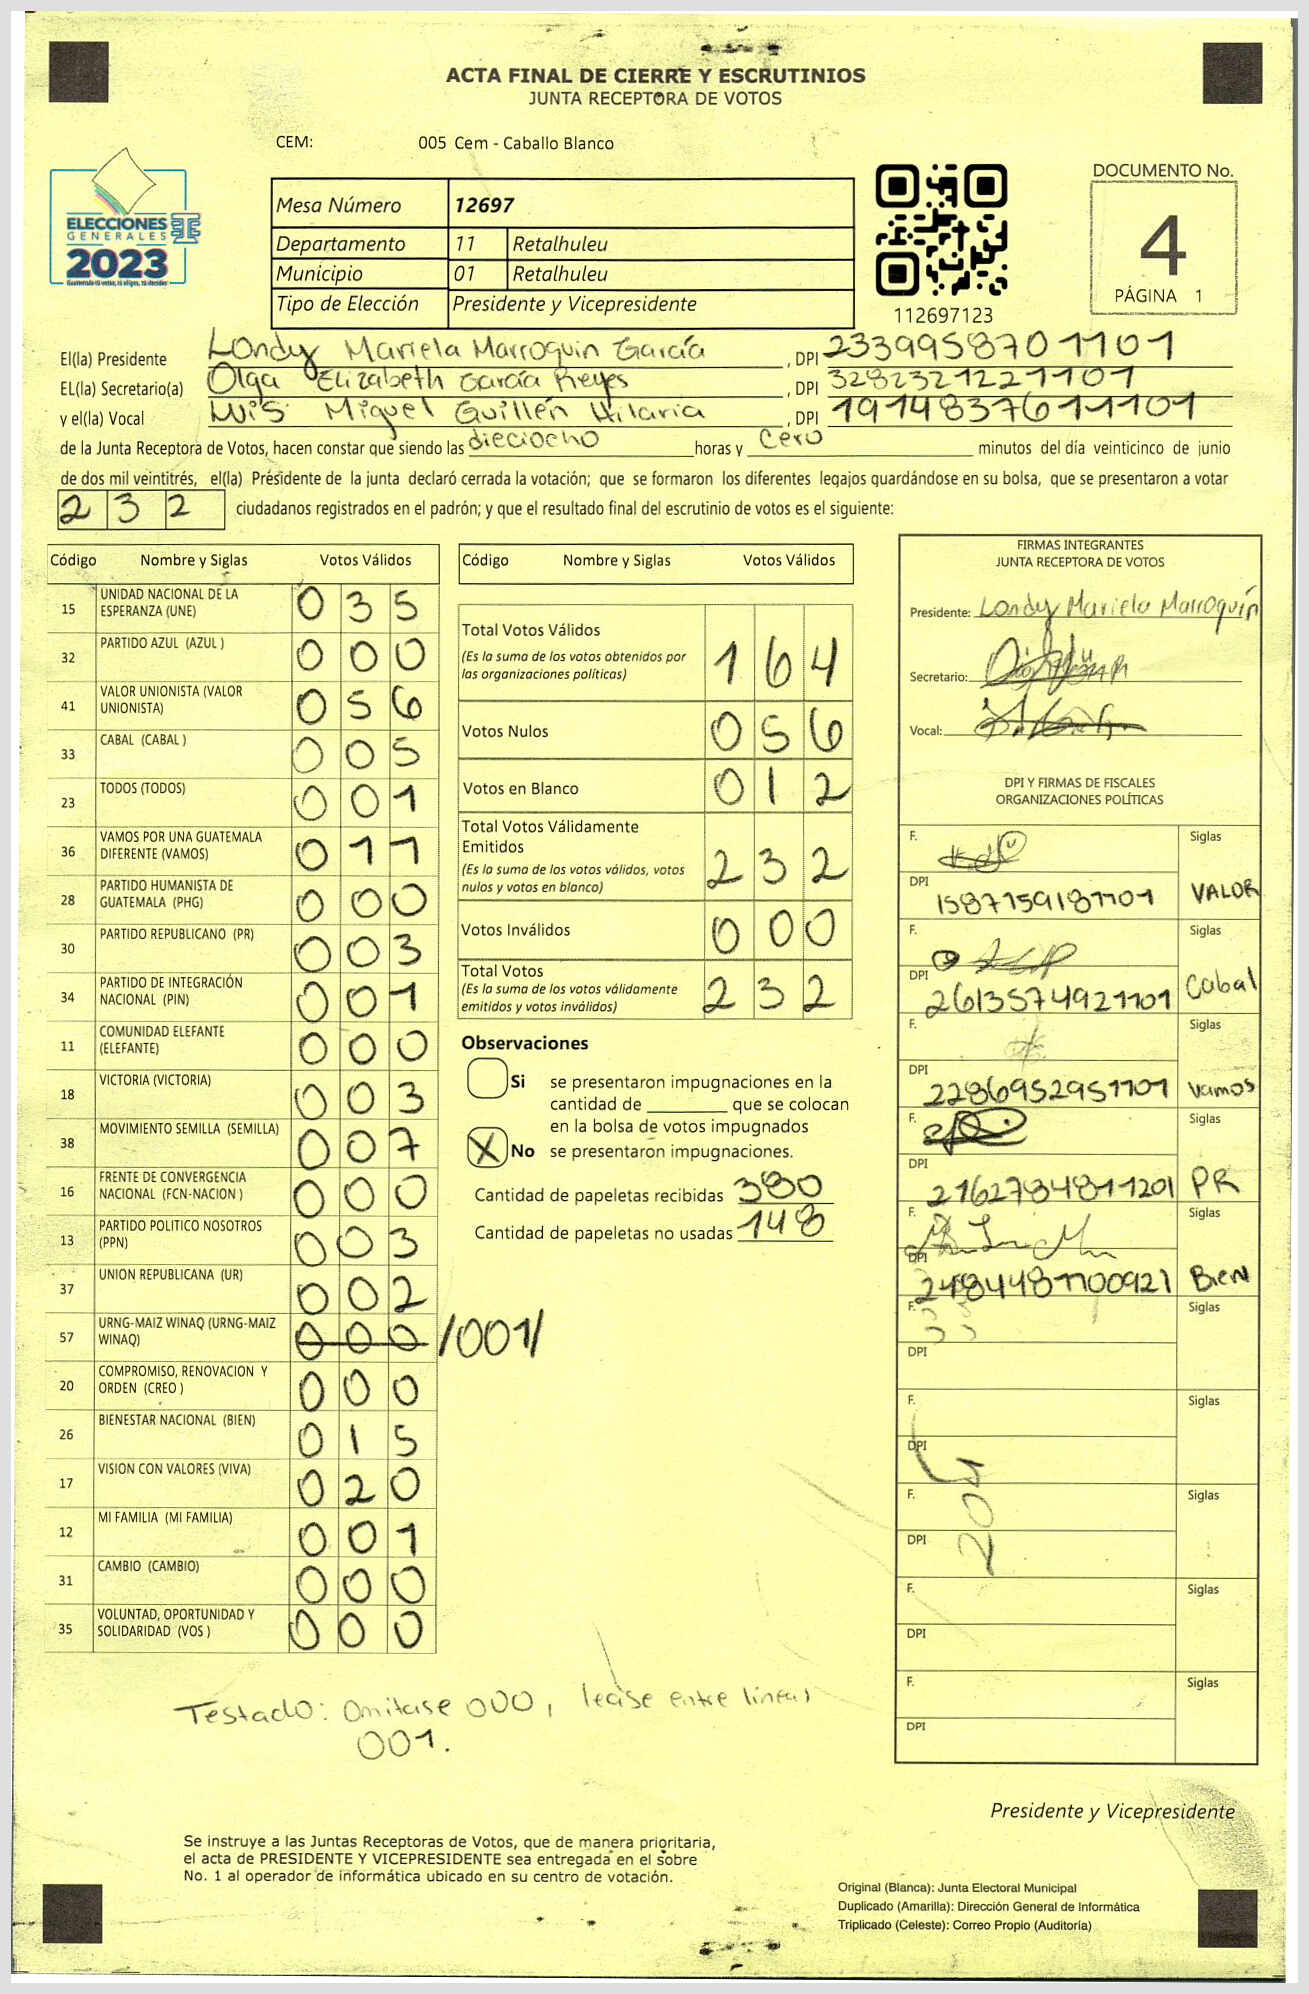 ACTA FINAL DE CIERRE Y ESCRUTINIOS
JUNTA RECEPTORA DE VOTOS
CEM: 005 Cem - Caballo Blanco
ELECCIONES
GENERALES
2023
Mesa Número 12697
Departamento 11 Retalhuleu
Municipio 01 Retalhuleu
Tipo de Elección Presidente y Vicepresidente
112697123
DOCUMENTO No.
4
PÁGINA 1
El(la) Presidente Londy Mariela Marroquin García , DPI 2339958701101
EL(la) Secretario(a) Olga Elizabeth García Reyes , DPI 3282321221101
y el(la) Vocal Luis Miguel Guillén Hilaria , DPI 1914837611101
de la Junta Receptora de Votos, hacen constar que siendo las dieciocho horas y cero minutos del día veinticinco de junio
de dos mil veintitrés, el(la) Présidente de la junta declaró cerrada la votación; que se formaron los diferentes legajos guardándose en su bolsa, que se presentaron a votar
232 ciudadanos registrados en el padrón; y que el resultado final del escrutinio de votos es el siguiente:
Código Nombre y Siglas Votos Válidos
15 UNIDAD NACIONAL DE LA ESPERANZA (UNE) 035
32 PARTIDO AZUL (AZUL ) 000
41 VALOR UNIONISTA (VALOR UNIONISTA) 056
33 CABAL (CABAL ) 005
23 TODOS (TODOS) 001
36 VAMOS POR UNA GUATEMALA DIFERENTE (VAMOS) 011
28 PARTIDO HUMANISTA DE GUATEMALA (PHG) 000
30 PARTIDO REPUBLICANO (PR) 003
34 PARTIDO DE INTEGRACIÓN NACIONAL (PIN) 001
11 COMUNIDAD ELEFANTE (ELEFANTE) 000
18 VICTORIA (VICTORIA) 003
38 MOVIMIENTO SEMILLA (SEMILLA) 007
16 FRENTE DE CONVERGENCIA NACIONAL (FCN-NACION ) 000
13 PARTIDO POLITICO NOSOTROS (PPN) 003
37 UNION REPUBLICANA (UR) 002
57 URNG-MAIZ WINAQ (URNG-MAIZ WINAQ) 000 /001/
20 COMPROMISO, RENOVACION Y ORDEN (CREO ) 000
26 BIENESTAR NACIONAL (BIEN) 015
17 VISION CON VALORES (VIVA) 020
12 MI FAMILIA (MI FAMILIA) 001
31 CAMBIO (CAMBIO) 000
35 VOLUNTAD, OPORTUNIDAD Y SOLIDARIDAD (VOS ) 000
Código Nombre y Siglas Votos Válidos
Total Votos Válidos 164
(Es la suma de los votos obtenidos por
las organizaciones políticas)
Votos Nulos 056
Votos en Blanco 012
Total Votos Válidamente
Emitidos 232
(Es la suma de los votos válidos, votos
nulos y votos en blanco)
Votos Inválidos 000
Total Votos 232
(Es la suma de los votos válidamente
emitidos y votos inválidos)
Observaciones
Si se presentaron impugnaciones en la
cantidad de ________ que se colocan
en la bolsa de votos impugnados
X No se presentaron impugnaciones.
Cantidad de papeletas recibidas 380
Cantidad de papeletas no usadas 148
FIRMAS INTEGRANTES
JUNTA RECEPTORA DE VOTOS
Presidente: Londy Mariela Marroquín
Secretario:
Vocal:
DPI Y FIRMAS DE FISCALES
ORGANIZACIONES POLÍTICAS
F. Siglas
DPI 1587159181101 VALOR
F. Siglas
DPI 2613574921101 Cabal
F. Siglas
DPI 2286952951101 Vamos
F. Siglas
DPI 2162784811201 PR
F. Siglas
DPI 2484481100921 Bien
F. Siglas
DPI
F. Siglas
DPI
F. Siglas
DPI
F. Siglas
DPI
F. Siglas
DPI
Testado: Omitase 000, lease entre lineas
001.
Presidente y Vicepresidente
Se instruye a las Juntas Receptoras de Votos, que de manera prioritaria,
el acta de PRESIDENTE Y VICEPRESIDENTE sea entregada en el sobre
No. 1 al operador de informática ubicado en su centro de votación.
Original (Blanca): Junta Electoral Municipal
Duplicado (Amarilla): Dirección General de Informática
Triplicado (Celeste): Correo Propio (Auditoría)